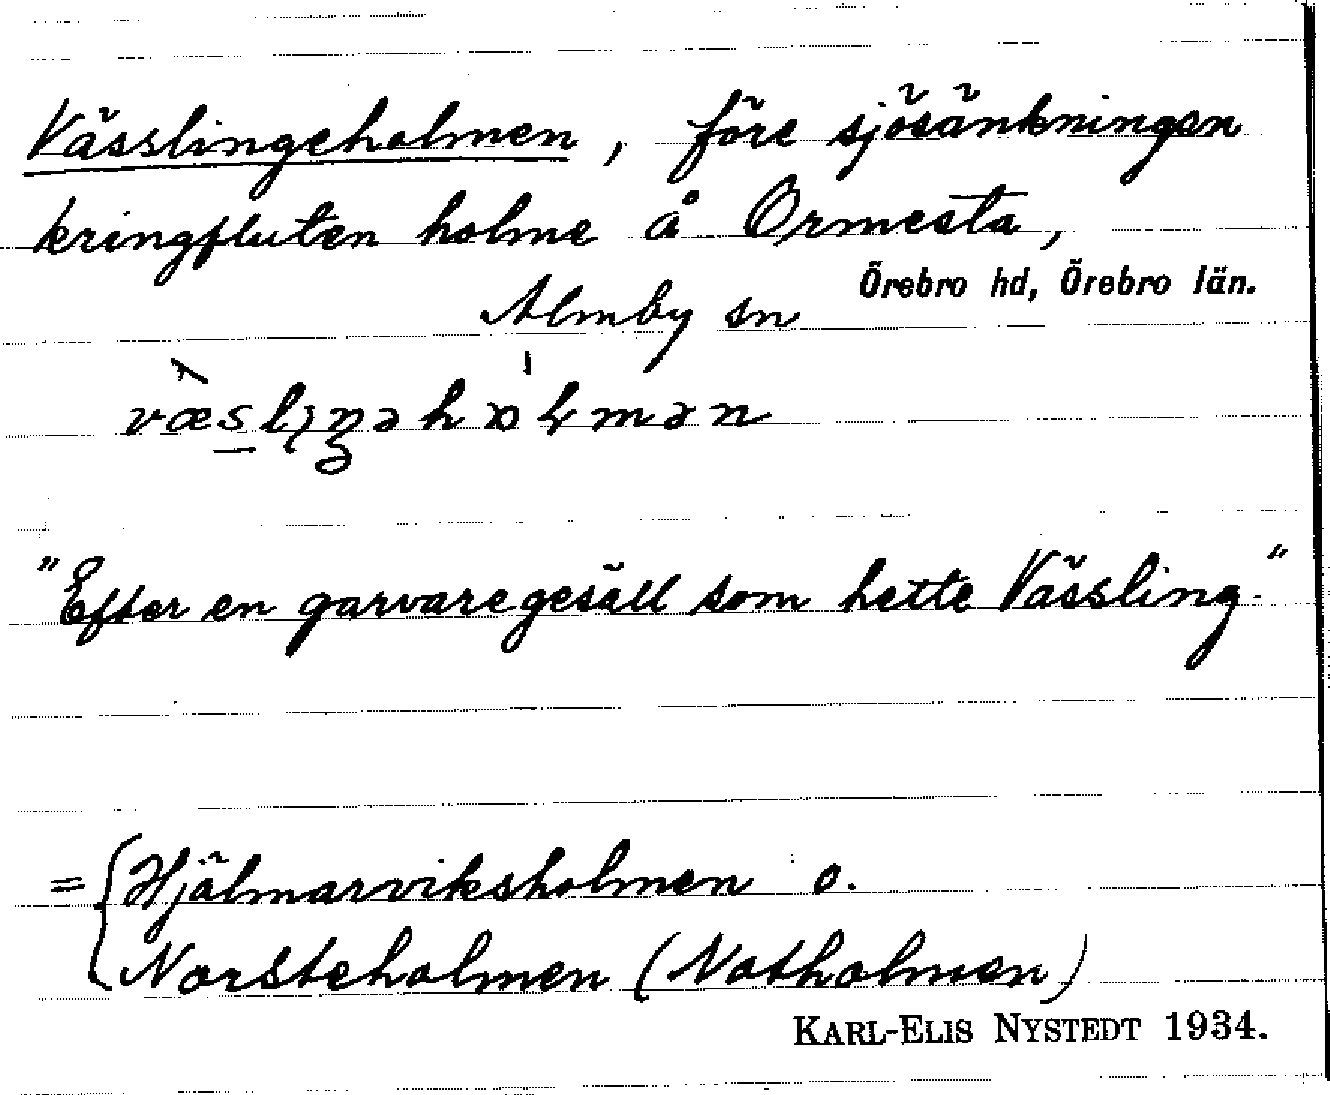 Vässlingeholmen, före sjösänkningen
kringfluten holme å Ormesta,
Örebro hd, Örebro län.
Almby sn
"Efter en garvaregesäll som hette Vässling."
= { Hjälmarviksholmen o.
Norsteholmen (Notholmen)
KARL-ELIS NYSTEDT 1934.